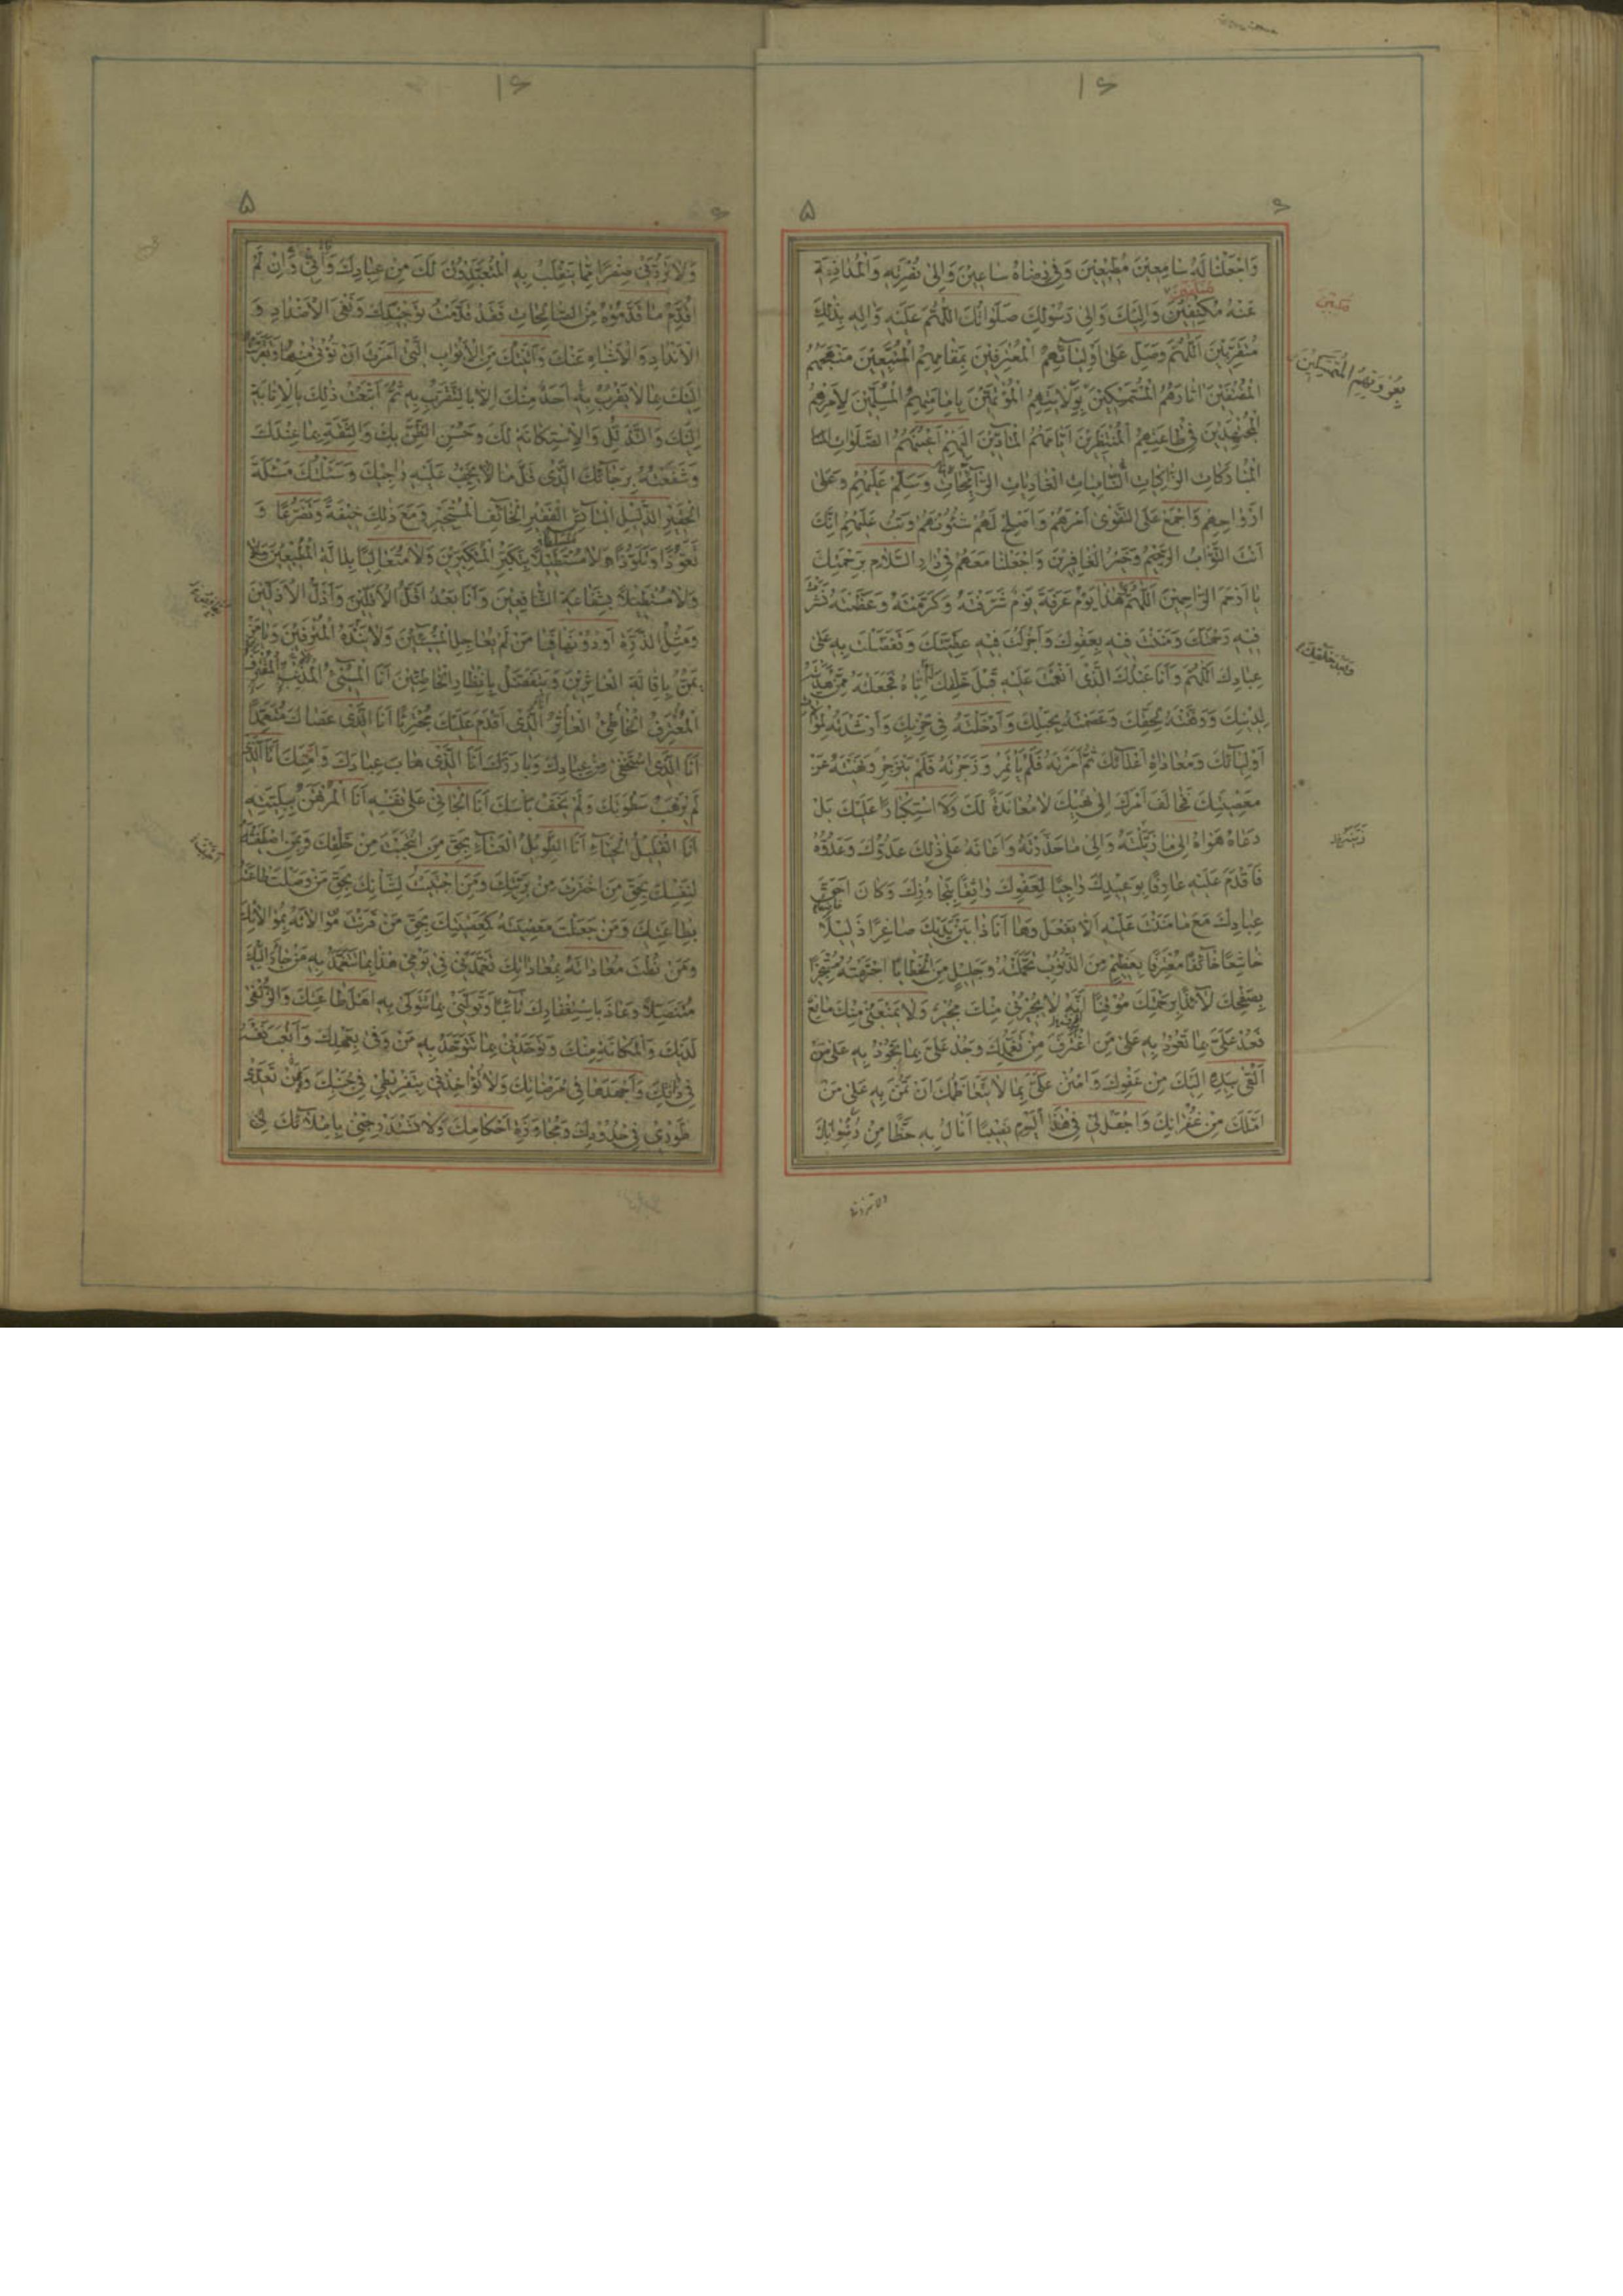 ١٦
٥
٦
وَاجْعَلْنَا لَهُ سَامِعِينَ مُطِيعِينَ وَفِي رِضَاهُ سَاعِينَ وَإِلَى نُصْرَتِهِ وَالْمُدَافَعَةِ
عَنْهُ مُكْنِفِينَ وَإِلَيْكَ وَإِلَى رَسُولِكَ صَلَوَاتُكَ اللَّهُمَّ عَلَيْهِ وَآلِهِ بِذَلِكَ
مُتَقَرِّبِينَ اللَّهُمَّ وَصَلِّ عَلَى أَوْلِيَائِهِمُ الْمُعْتَرِفِينَ بِمَقَامِهِمُ الْمُتَّبِعِينَ مَنْهَجَهُمُ
الْمُقْتَفِينَ آثَارَهُمُ الْمُسْتَمْسِكِينَ بِوَلَايَتِهِمُ الْمُؤْتَمِّينَ بِإِمَامَتِهِمُ الْمُسَلِّمِينَ لِأَمْرِهِمُ
الْمُجْتَهِدِينَ فِي طَاعَتِهِمُ الْمُنْتَظِرِينَ أَيَّامَهُمُ الْمَادِّينَ إِلَيْهِمْ أَعْيُنَهُمُ الصَّلَوَاتِ
الْمُبَارَكَاتِ الزَّاكِيَاتِ النَّامِيَاتِ الْغَادِيَاتِ الرَّائِحَاتِ وَسَلِّمْ عَلَيْهِمْ وَعَلَى
أَرْوَاحِهِمْ وَاجْمَعْ عَلَى التَّقْوَى أَمْرَهُمْ وَأَصْلِحْ لَهُمْ شُئُونَهُمْ وَتُبْ عَلَيْهِمْ إِنَّكَ
أَنْتَ التَّوَّابُ الرَّحِيمُ وَخَيْرُ الْغَافِرِينَ وَاجْعَلْنَا مَعَهُمْ فِي دَارِ السَّلَامِ بِرَحْمَتِكَ
يَا أَرْحَمَ الرَّاحِمِينَ اللَّهُمَّ هَذَا يَوْمُ عَرَفَةَ يَوْمٌ شَرَّفْتَهُ وَكَرَّمْتَهُ وَعَظَّمْتَهُ نَشَرْتَ
فِيهِ رَحْمَتَكَ وَمَنَنْتَ فِيهِ بِعَفْوِكَ وَأَجْزَلْتَ فِيهِ عَطِيَّتَكَ وَتَفَضَّلْتَ بِهِ عَلَى
عِبَادِكَ اللَّهُمَّ وَأَنَا عَبْدُكَ الَّذِي أَنْعَمْتَ عَلَيْهِ قَبْلَ خَلْقِكَ إِيَّاهُ فَجَعَلْتَهُ مِمَّنْ هَدَيْتَهُ
لِدِينِكَ وَوَفَّقْتَهُ لِحَقِّكَ وَعَصَمْتَهُ بِحَبْلِكَ وَأَدْخَلْتَهُ فِي حِزْبِكَ وَأَرْشَدْتَهُ لِمُوَالَاةِ
أَوْلِيَائِكَ وَمُعَادَاةِ أَعْدَائِكَ ثُمَّ أَمَرْتَهُ فَلَمْ يَأْتَمِرْ وَزَجَرْتَهُ فَلَمْ يَنْزَجِرْ وَنَهَيْتَهُ عَنْ
مَعْصِيَتِكَ فَخَالَفَ أَمْرَكَ إِلَى نَهْيِكَ لَا مُعَانَدَةً لَكَ وَلَا اسْتِكْبَارًا عَلَيْكَ بَلْ
دَعَاهُ هَوَاهُ إِلَى مَا زَيَّلْتَهُ وَإِلَى مَا حَذَّرْتَهُ وَأَعَانَهُ عَلَى ذَلِكَ عَدُوُّكَ وَعَدُوُّهُ
فَأَقْدَمَ عَلَيْهِ عَارِفًا بِوَعِيدِكَ رَاجِيًا لِعَفْوِكَ وَاثِقًا بِتَجَاوُزِكَ وَكَانَ أَحَقَّ
عِبَادِكَ مَعَ مَا مَنَنْتَ عَلَيْهِ أَلَّا يَفْعَلَ وَهَا أَنَا ذَا بَيْنَ يَدَيْكَ صَاغِرًا ذَلِيلًا
خَاشِعًا خَائِفًا مُعْتَرِفًا بِعَظِيمٍ مِنَ الذُّنُوبِ تَحَمَّلْتُهُ وَجَلِيلٍ مِنَ الْخَطَايَا اجْتَرَمْتُهُ مُسْتَجِيرًا
بِصَفْحِكَ لَائِذًا بِرَحْمَتِكَ مُوقِنًا أَنَّهُ لَا يُجِيرُنِي مِنْكَ مُجِيرٌ وَلَا يَمْنَعُنِي مِنْكَ مَانِعٌ
فَعُدْ عَلَيَّ بِمَا تَعُودُ بِهِ عَلَى مَنِ اقْتَرَفَ مِنْ تَغَمُّدِكَ وَجُدْ عَلَيَّ بِمَا تَجُودُ بِهِ عَلَى مَنْ
أَلْقَى بِيَدِهِ إِلَيْكَ مِنْ عَفْوِكَ وَامْنُنْ عَلَيَّ بِمَا لَا يَتَعَاظَمُكَ أَنْ تَمُنَّ بِهِ عَلَى مَنْ
أَمَّلَكَ مِنْ غُفْرَانِكَ وَاجْعَلْ لِي فِي هَذَا الْيَوْمِ نَصِيبًا أَنَالُ بِهِ حَظًّا مِنْ رِضْوَانِكَ
وَبَعْدَ خَلْقِكَ
١٦
٥
٦
وَلَا تَرُدَّنِي صِفْرًا مِمَّا يَنْقَلِبُ بِهِ الْمُتَعَبِّدُونَ لَكَ مِنْ عِبَادِكَ وَإِنِّي وَإِنْ لَمْ
أُقَدِّمْ مَا قَدَّمُوهُ مِنَ الصَّالِحَاتِ فَقَدْ قَدَّمْتُ تَوْحِيدَكَ وَنَفْيَ الْأَضْدَادِ وَ
الْأَنْدَادِ وَالْأَشْبَاهِ عَنْكَ وَأَتَيْتُكَ مِنَ الْأَبْوَابِ الَّتِي أَمَرْتَ أَنْ تُؤْتَى مِنْهَا وَتَقَرَّبْتُ
إِلَيْكَ بِمَا لَا يَقْرُبُ بِهِ أَحَدٌ مِنْكَ إِلَّا بِالتَّقَرُّبِ بِهِ ثُمَّ أَتْبَعْتُ ذَلِكَ بِالْإِنَابَةِ
إِلَيْكَ وَالتَّذَلُّلِ وَالْاسْتِكَانَةِ لَكَ وَحُسْنِ الظَّنِّ بِكَ وَالثِّقَةِ بِمَا عِنْدَكَ
وَشَفَعْتُهُ بِرَجَائِكَ الَّذِي قَلَّ مَا لَا يَخِيبُ عَلَيْهِ رَاجِيكَ وَسَئَلْتُكَ مَسْئَلَةَ
الْحَقِيرِ الذَّلِيلِ الْبَائِسِ الْفَقِيرِ الْخَائِفِ الْمُسْتَجِيرِ وَمَعَ ذَلِكَ خِيفَةً وَتَضَرُّعًا وَ
تَعَوُّذًا وَتَلَوُّذًا لَا مُسْتَطِيلًا بِتَكَبُّرِ الْمُتَكَبِّرِينَ وَلَا مُتَعَالِيًا بِدَالَّةِ الْمُطِيعِينَ
وَلَا مُسْتَطِيلًا بِشَفَاعَةِ الشَّافِعِينَ وَأَنَا بَعْدُ أَقَلُّ الْأَقَلِّينَ وَأَذَلُّ الْأَذَلِّينَ
وَمِثْلُ الذَّرَّةِ أَوْ دُونَهَا فَيَا مَنْ لَمْ يُعَاجِلِ الْمُسِيئِينَ وَلَا يَنْدَهُ الْمُتْرَفِينَ وَيَا مَنْ
يَمُنُّ بِإِقَالَةِ الْعَاثِرِينَ وَيَتَفَضَّلُ بِإِنْظَارِ الْخَاطِئِينَ أَنَا الْمُسِيءُ الْمُذْنِبُ الْمُقْتَرِفُ
الْمُعْتَرِفُ الْخَاطِئُ الْعَاثِرُ الَّذِي أَقْدَمَ عَلَيْكَ مُجْتَرِئًا أَنَا الَّذِي عَصَاكَ مُتَعَمِّدًا
أَنَا الَّذِي اسْتَخْفَى مِنْ عِبَادِكَ وَبَارَزَكَ أَنَا الَّذِي هَابَ عِبَادَكَ وَأَمِنَكَ أَنَا الَّذِي
لَمْ يَرْهَبْ سَطْوَتَكَ وَلَمْ يَخَفْ بَأْسَكَ أَنَا الْجَانِي عَلَى نَفْسِهِ أَنَا الْمُرْتَهَنُ بِبَلِيَّتِهِ
أَنَا الْقَلِيلُ الْحَيَاءِ أَنَا الطَّوِيلُ الْعَنَاءِ بِحَقِّ مَنِ انْتَجَبْتَ مِنْ خَلْقِكَ وَبِمَنِ اصْطَفَيْتَهُ
لِنَفْسِكَ بِحَقِّ مَنِ اخْتَرْتَ مِنْ بَرِيَّتِكَ وَمَنِ اجْتَبَيْتَ لِشَأْنِكَ بِحَقِّ مَنْ وَصَلْتَ طَاعَتَهُ
بِطَاعَتِكَ وَمَنْ جَعَلْتَ مَعْصِيَتَهُ كَمَعْصِيَتِكَ بِحَقِّ مَنْ قَرَنْتَ مُوَالَاتَهُ بِمُوَالَاتِكَ
وَمَنْ نُطْتَ مُعَادَاتَهُ بِمُعَادَاتِكَ تَغَمَّدْنِي فِي يَوْمِي هَذَا بِمَا تَتَغَمَّدُ بِهِ مَنْ جَأَرَ إِلَيْكَ
مُتَنَصِّلًا وَعَاذَ بِاسْتِغْفَارِكَ تَائِبًا وَتَوَلَّنِي بِمَا تَتَوَلَّى بِهِ أَهْلَ طَاعَتِكَ وَالزُّلْفَى
لَدَيْكَ وَالْمَكَانَةِ مِنْكَ وَتَوَحَّدْنِي بِمَا تَتَوَحَّدُ بِهِ مَنْ وَفَى بِعَهْدِكَ وَأَتْعَبَ نَفْسَهُ
فِي ذَاتِكَ وَأَجْهَدَهَا فِي مَرْضَاتِكَ وَلَا تُؤَاخِذْنِي بِتَفْرِيطِي فِي جَنْبِكَ وَتَعَدِّي
طَوْرِي فِي حُدُودِكَ وَمُجَاوَزَةِ أَحْكَامِكَ وَلَا تَسْتَدْرِجْنِي بِإِمْلَائِكَ لِي